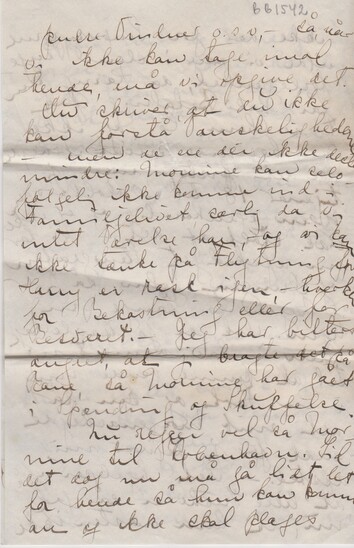 BB1542
andre Vinduer o.s.v., – så, når
vi ikke kan tage imod
hende, må vi opgive det.
Du skriver, at du ikke
kan forstå vanskeligheden
– men de er der ikke desto
mindre: Mornine kan selv
følgelig ikke komme ind i
Familjelivet særlig da vi
intet Værelse har, og vi kan
ikke tænke på Flytning før
er rask igen, – hverken
for Bekostning eller for
Besværet. – Jeg har bittert
angret, at vi bragte det så
, så Mornine har gået
i Spænding og Skuffelse
Nu rejser vel så Mor
nine til København. Lil
det dog nu må gå lidt let
for hende så hun kan komme
an og ikke skal plages